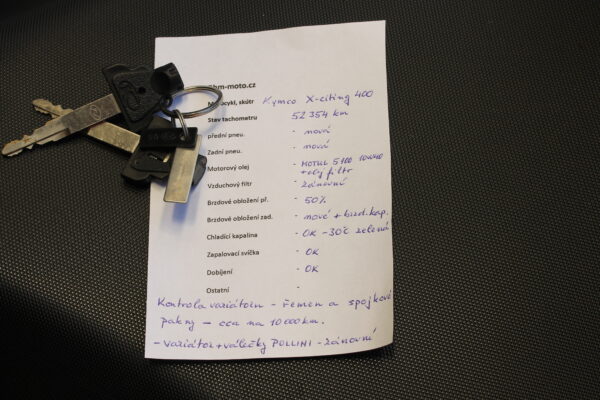 hm-moto.cz
Motocykl, skútr Kymco X-citing 400
Stav tachometru 52 354 km
přední pneu. - nová
Zadní pneu. - nová
Motorový olej - MOTUL 5100 10W40
+ olej filtr
Vzduchový filtr - zánovní
Brzdové obložení př. - 50%
Brzdové obložení zad. - nové + brzd. kap.
Chladící kapalina - OK -30°C zelená
Zapalovací svíčka - OK
Dobíjení - OK
Ostatní -
Kontrola variátoru - řemen a spojkové
pakny - cca na 10 000 km.
- variátor + válečky POLLINI - zánovní